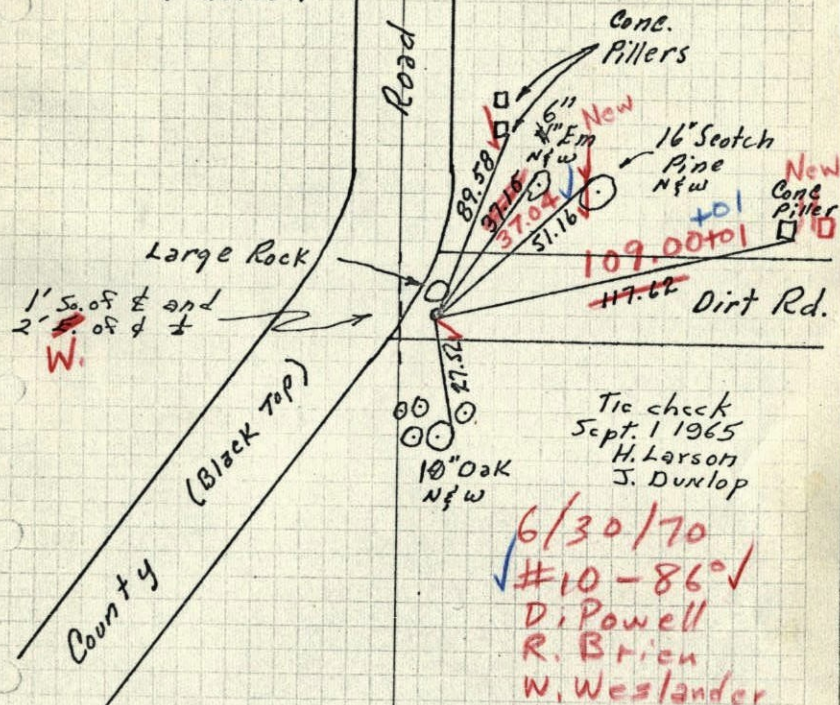 Road
Conc.
Pillers
6"
4" Em
N & W
New
16" Scotch
Pine
N & W
New
Conc
Piller
+01
89.58
37.15
37.04
51.16
109.00+01
117.62
Dirt Rd.
Large Rock
1' So. of ℄ and
2' E. of ℄
W.
27.52
(Black Top)
County
10" Oak
N & W
Tie check
Sept. 1 1965
H. Larson
J. Dunlop
6/30/70
#10 - 86°
D. Powell
R. Brien
W. Weslander